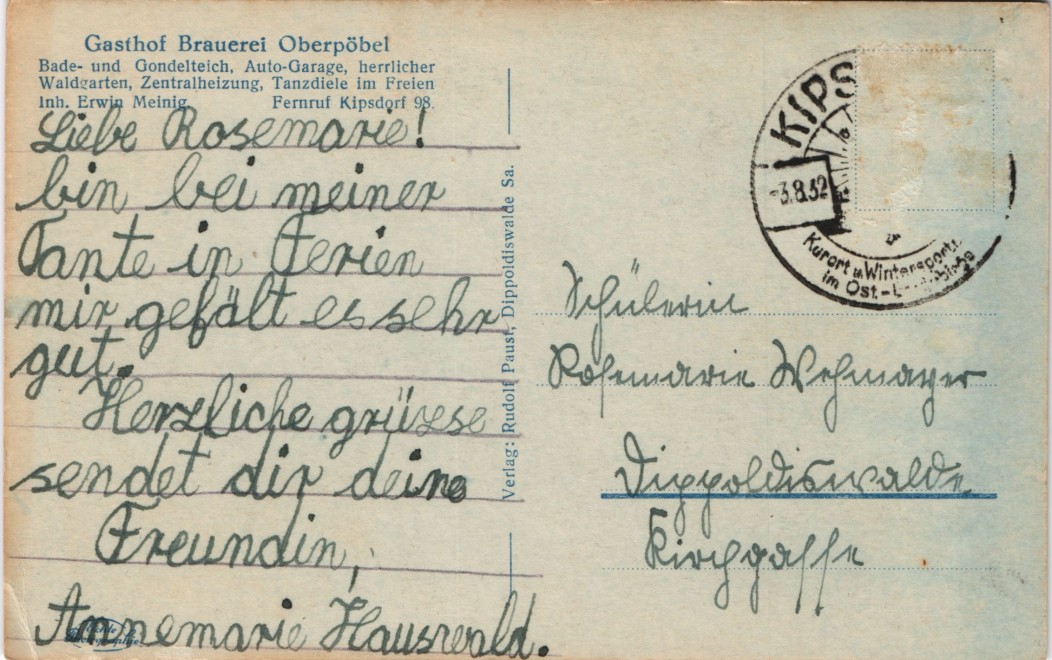 Gasthof Brauerei Oberpöbel
Bade- und Gondelteich, Auto-Garage, herrlicher
Waldgarten, Zentralheizung, Tanzdiele im Freien
Inh. Erwin Meinig. Fernruf Kipsdorf 98.
Liebe Rosemarie!
bin bei meiner
Tante in Ferien
mir gefält es sehr
gut.
Herzliche grüsse
sendet dir deine
Freundin,
Annemarie Hauswald.
Verlag: Rudolf Paust, Dippoldiswalde Sa.
KIPS
-3.8.32
Kurort u. Wintersport
im Ost-
Schülerin
Rosemarie Wehmayer
Dippoldiswalde
Kirchgasse